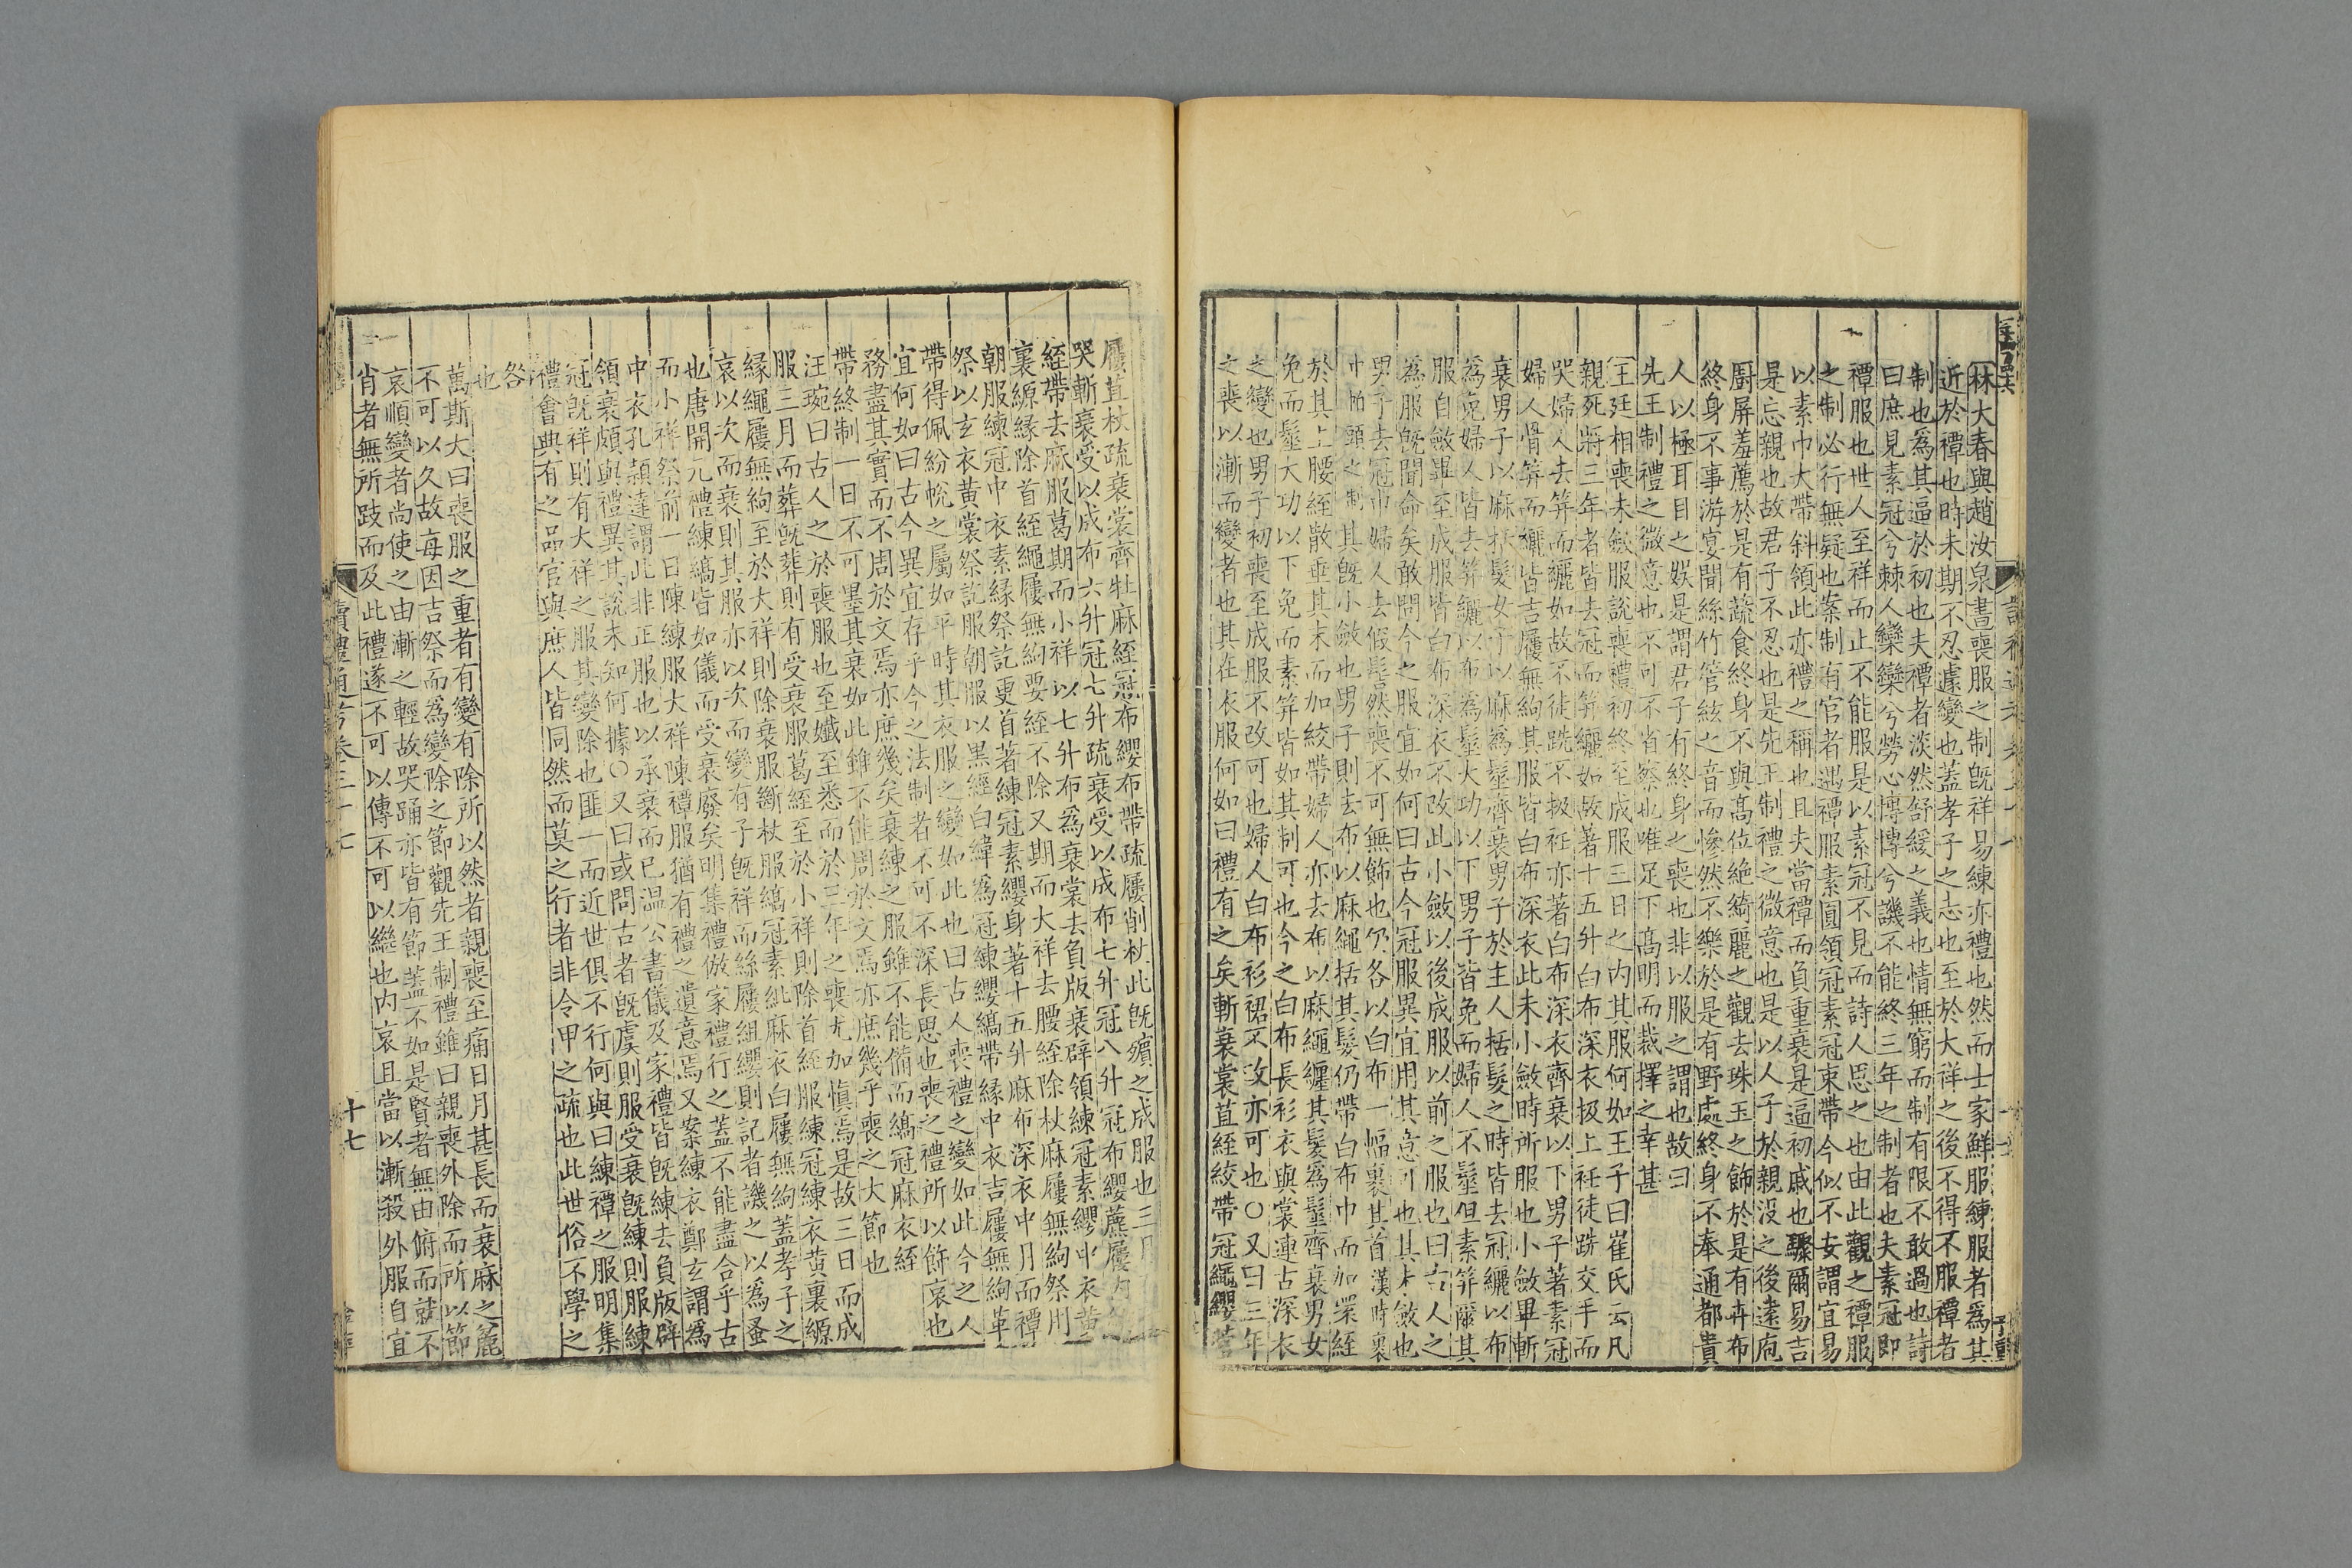 林大春與趙汝泉書喪服之制旣祥易練亦禮也然而士家鮮服練服者爲其
近於禫也時未期不忍遽變也蓋孝子之志也至於大祥之後不得不服禫者
制也爲其逼於初也夫禫者淡然舒緩之義也情無窮而制有限不敢過也詩
曰庶見素冠兮棘人欒欒兮勞心慱慱兮譏不能終三年之制者也夫素冠即
禫服也世人至祥而止不能服是以素冠不見而詩人思之也由此觀之禫服
之制必行無疑也案制有官者遇禫服素圓領冠素冠束帶今似不女謂宜易
以素巾大帶斜領此亦禮之稱也且夫當禫而負重衰是逼初戚也驟爾易吉
是忘親也故君子不忍也是先王制禮之微意也是以人子於親沒之後遠庖
厨屏羞薦於是有蔬食終身不與高位絶綺麗之觀去珠玉之飾於是有卉布
終身不事游宴聞絲竹管絃之音而慘然不樂於是有野處終身不奉通都貴
人以極耳目之娛是謂君子有終身之喪也非以服之謂也故曰
先王制禮之微意也不可不省察也唯足下高明而裁擇之幸甚
王廷相喪未斂服說喪禮初終至成服三日之内其服何如王子曰崔氏云凡
親死將三年者皆去冠而筓纚如故著十五升白布深衣扱上衽徒跣交手而
哭婦人去筓而纚如故不徒跣不扱衽亦著白布深衣齊衰以下男子著素冠
婦人骨筓而纚皆吉屨無絇其服皆白布深衣此未小斂時所服也小斂畢斬
衰男子以麻括髮女子以麻爲髽齊衰男子於主人括髮之時皆去冠纚以布
爲免婦人皆去筓纚以布爲髽大功以下男子皆免而婦人不髽但素筓爾其
服自斂畢至成服皆白布深衣不改此小斂以後成服以前之服也曰古人之
爲服旣聞命矣敢問今之服宜如何曰古今冠服異宜用其意可也其未斂也
男子去冠巾婦人去假髻然喪不可無飾也仍各以白布一幅裹其首漢時裹
巾帕頭之制其旣小斂也男子則去布以麻繩括其髮仍帶白布巾而加環絰
於其上腰絰散垂其末而加絞帶婦人亦去布以麻繩纏其髮爲髽齊衰男女
免而髽大功以下免而素筓皆如其制可也今之白布長衫衣與裳連古深衣
之變也男子初喪至成服不改可也婦人白布衫裙不改亦可也○又曰三年
之喪以漸而變者也其在衣服何如曰禮有之矣斬衰裳苴絰絞帶冠繩纓菅
屨苴杖疏衰裳齊牡麻絰冠布纓布帶疏屨削杖此旣殯之成服也三月
哭斬衰受以成布六升冠七升疏衰受以成布七升冠八升冠布纓蔴屨
絰帶去麻服葛期而小祥以七升布爲衰裳去負版衰辟領練冠素纓中衣黄
裏縓緣除首絰繩屨無絇要絰不除又期而大祥去腰絰除杖麻屨無絇祭用
朝服練冠中衣素緣祭訖更首著練冠素纓身著十五升麻布深衣中月而禫
祭以玄衣黄裳祭訖服朝服以黑經白緯爲冠練纓縞帶緣中衣吉屨無絇革
帶得佩紛帨之屬如平時其衣服之變如此也曰古人喪禮之變如此今之人
宜何如曰古今異宜存乎今之法制者不可不深長思也喪之禮所以飾哀也
務盡其實而不周於文焉亦庶幾矣衰練之服雖不能備而縞冠麻衣絰
帶終制一日不可墨其衰如此雖不能周於文焉亦庶幾乎喪之大節也
汪琬曰古人之於喪服也至孅至悉而於三年之喪尤加愼焉是故三日而成
服三月而葬旣葬則有受衰服葛絰至於小祥則除首絰服練冠練衣黄裏縓
緣繩屨無絇至於大祥則除衰服斷杖服縞冠素紕麻衣白屨無絇蓋孝子之
哀以次而衰則其服亦以次而變有子旣祥而絲屨組纓則記者譏之以爲蚤
也唐開元禮練縞皆如儀而受衰廢矣明集禮倣家禮行之蓋不能盡合乎古
而小祥祭前一日陳練服大祥陳禫服猶有禮之遺意焉又案練衣鄭玄謂爲
中衣孔頴達謂此非正服也以承衰而已温公書儀及家禮皆旣練去負版辟
領衰頗與禮異其説未知何據○又曰或問古者旣虞則服受衰旣練則服練
冠旣祥則有大祥之服其變除也匪一而近世俱不行何與曰練禫之服明集
禮會典有之品官與庶人皆同然而莫之行者非令甲之疏也此世俗不學之
咎也
萬斯大曰喪服之重者有變有除所以然者親喪至痛日月甚長而衰麻之麄
不可以久故每因吉祭而爲變除之節觀先王制禮雖曰親喪外除而所以節
哀順變者尚使之由漸之輕故哭踊亦皆有節蓋不如是賢者無由俯而就不
肖者無所跂而及此禮遂不可以傳不可以繼也内哀且當以漸殺外服自宜
讀禮通考卷三十七
十七